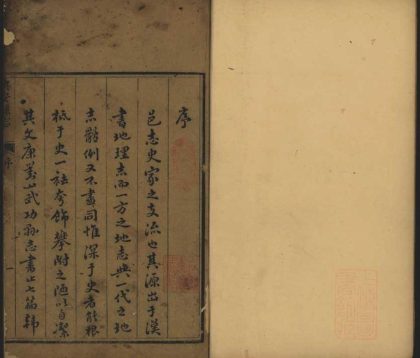 序
邑志史家之支流也其源出于漢
書地理志而一方之地志與一代之地
志體例又不盡同惟深于史者能根
柢于史一祛夸飾攀附之陋以自潔
其文康對山武功縣志書止七篇韓